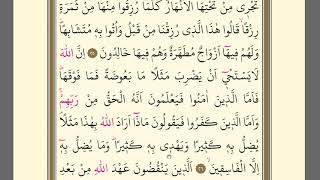 تَجْرٖى مِنْ تَحْتِهَا الْاَنْهَارُ كُلَّمَا رُزِقُوا مِنْهَا مِنْ ثَمَرَةٍ
رِزْقًا قَالُوا هٰذَا الَّذٖى رُزِقْنَا مِنْ قَبْلُ وَاُتُوا بِهٖ مُتَشَابِهًا
وَلَهُمْ فٖيهَا اَزْوَاجٌ مُطَهَّرَةٌ وَهُمْ فٖيهَا خَالِدُونَ ﴿٢٥﴾ اِنَّ اللّٰهَ
لَا يَسْتَحْيٖٓ اَنْ يَضْرِبَ مَثَلًا مَا بَعُوضَةً فَمَا فَوْقَهَا
فَاَمَّا الَّذٖينَ اٰمَنُوا فَيَعْلَمُونَ اَنَّهُ الْحَقُّ مِنْ رَبِّهِمْ
وَاَمَّا الَّذٖينَ كَفَرُوا فَيَقُولُونَ مَاذَٓا اَرَادَ اللّٰهُ بِهٰذَا مَثَلًا
يُضِلُّ بِهٖ كَثٖيرًا وَيَهْدٖى بِهٖ كَثٖيرًا وَمَا يُضِلُّ بِهٖٓ
اِلَّا الْفَاسِقٖينَ ﴿٢٦﴾ اَلَّذٖينَ يَنْقُضُونَ عَهْدَ اللّٰهِ مِنْ بَعْدِ